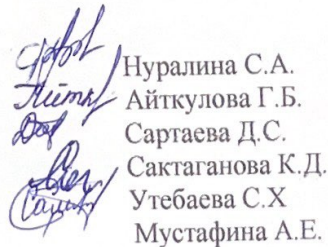 Нуралина С.А.
Айткулова Г.Б.
Сартаева Д.С.
Сактаганова К.Д.
Утебаева С.Х
Мустафина А.Е.